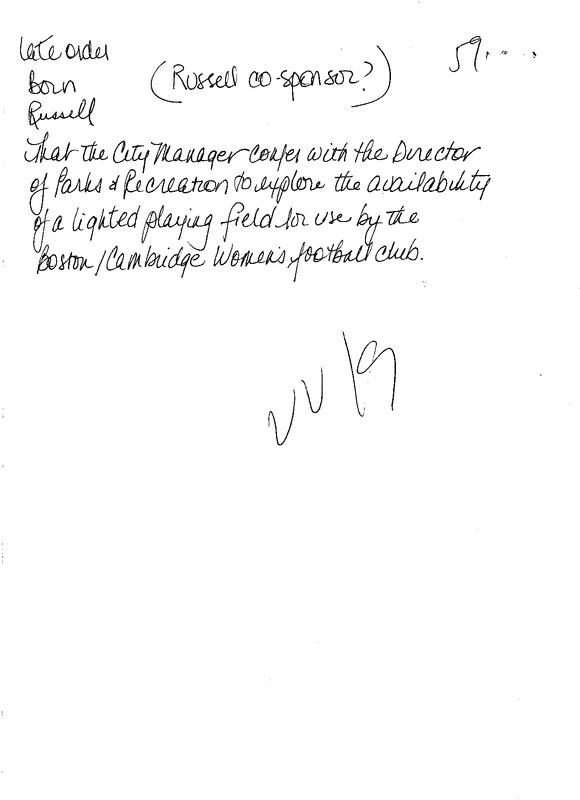 late order
Born (Russell co-sponsor?)
Russell
59
That the City Manager confer with the Director
of Parks & Recreation to explore the availability
of a lighted playing field for use by the
Boston/Cambridge Women's football club.